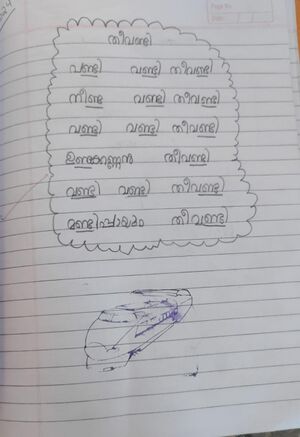 തീവണ്ടി
വണ്ടി വണ്ടി തീവണ്ടി
നീണ്ട വണ്ടി തീവണ്ടി
വണ്ടി വണ്ടി തീവണ്ടി
ഉണ്ടക്കണ്ണൻ തീവണ്ടി
വണ്ടി വണ്ടി തീവണ്ടി
മണ്ടിപ്പായും തീവണ്ടി